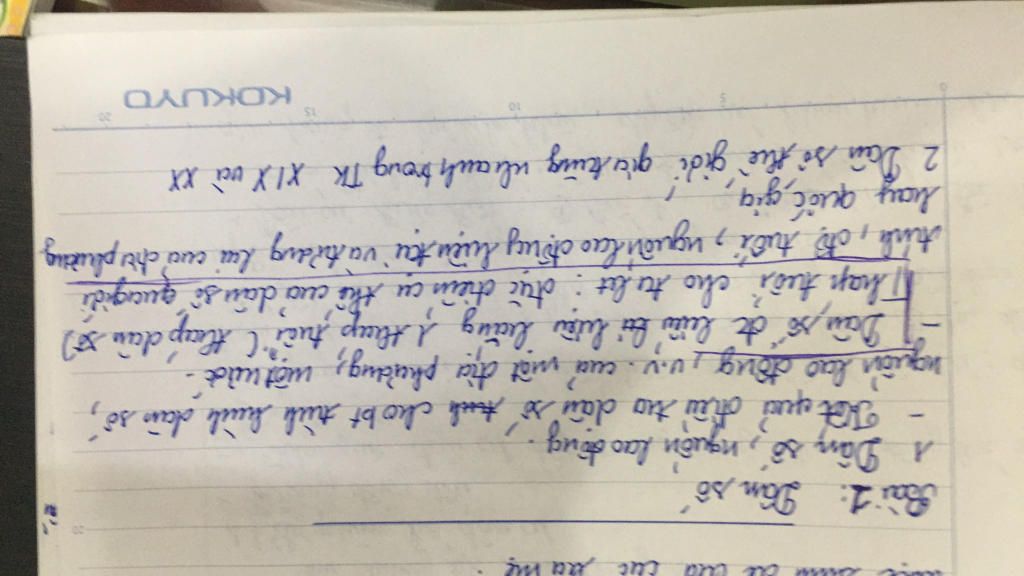 Bài 1: Dân số
1 Dân số, nguồn lao động.
- Kết quả điều tra dân số cho bt tình hình dân số,
nguồn lao động, v.v. của một địa phương, một nước.
- Dân số đc biểu hiện bằng 1 tháp tuổi (tháp dân số)
Tháp tuổi cho ta bt: đặc điểm cụ thể của dân số qua giới
tính, độ tuổi, nguồn lao động hiện tại và tương lai của địa phương
hay quốc gia
2 Dân số thế giới gia tăng nhanh trong TK XIX và XX
0 5 10 15 20
KOKUYO